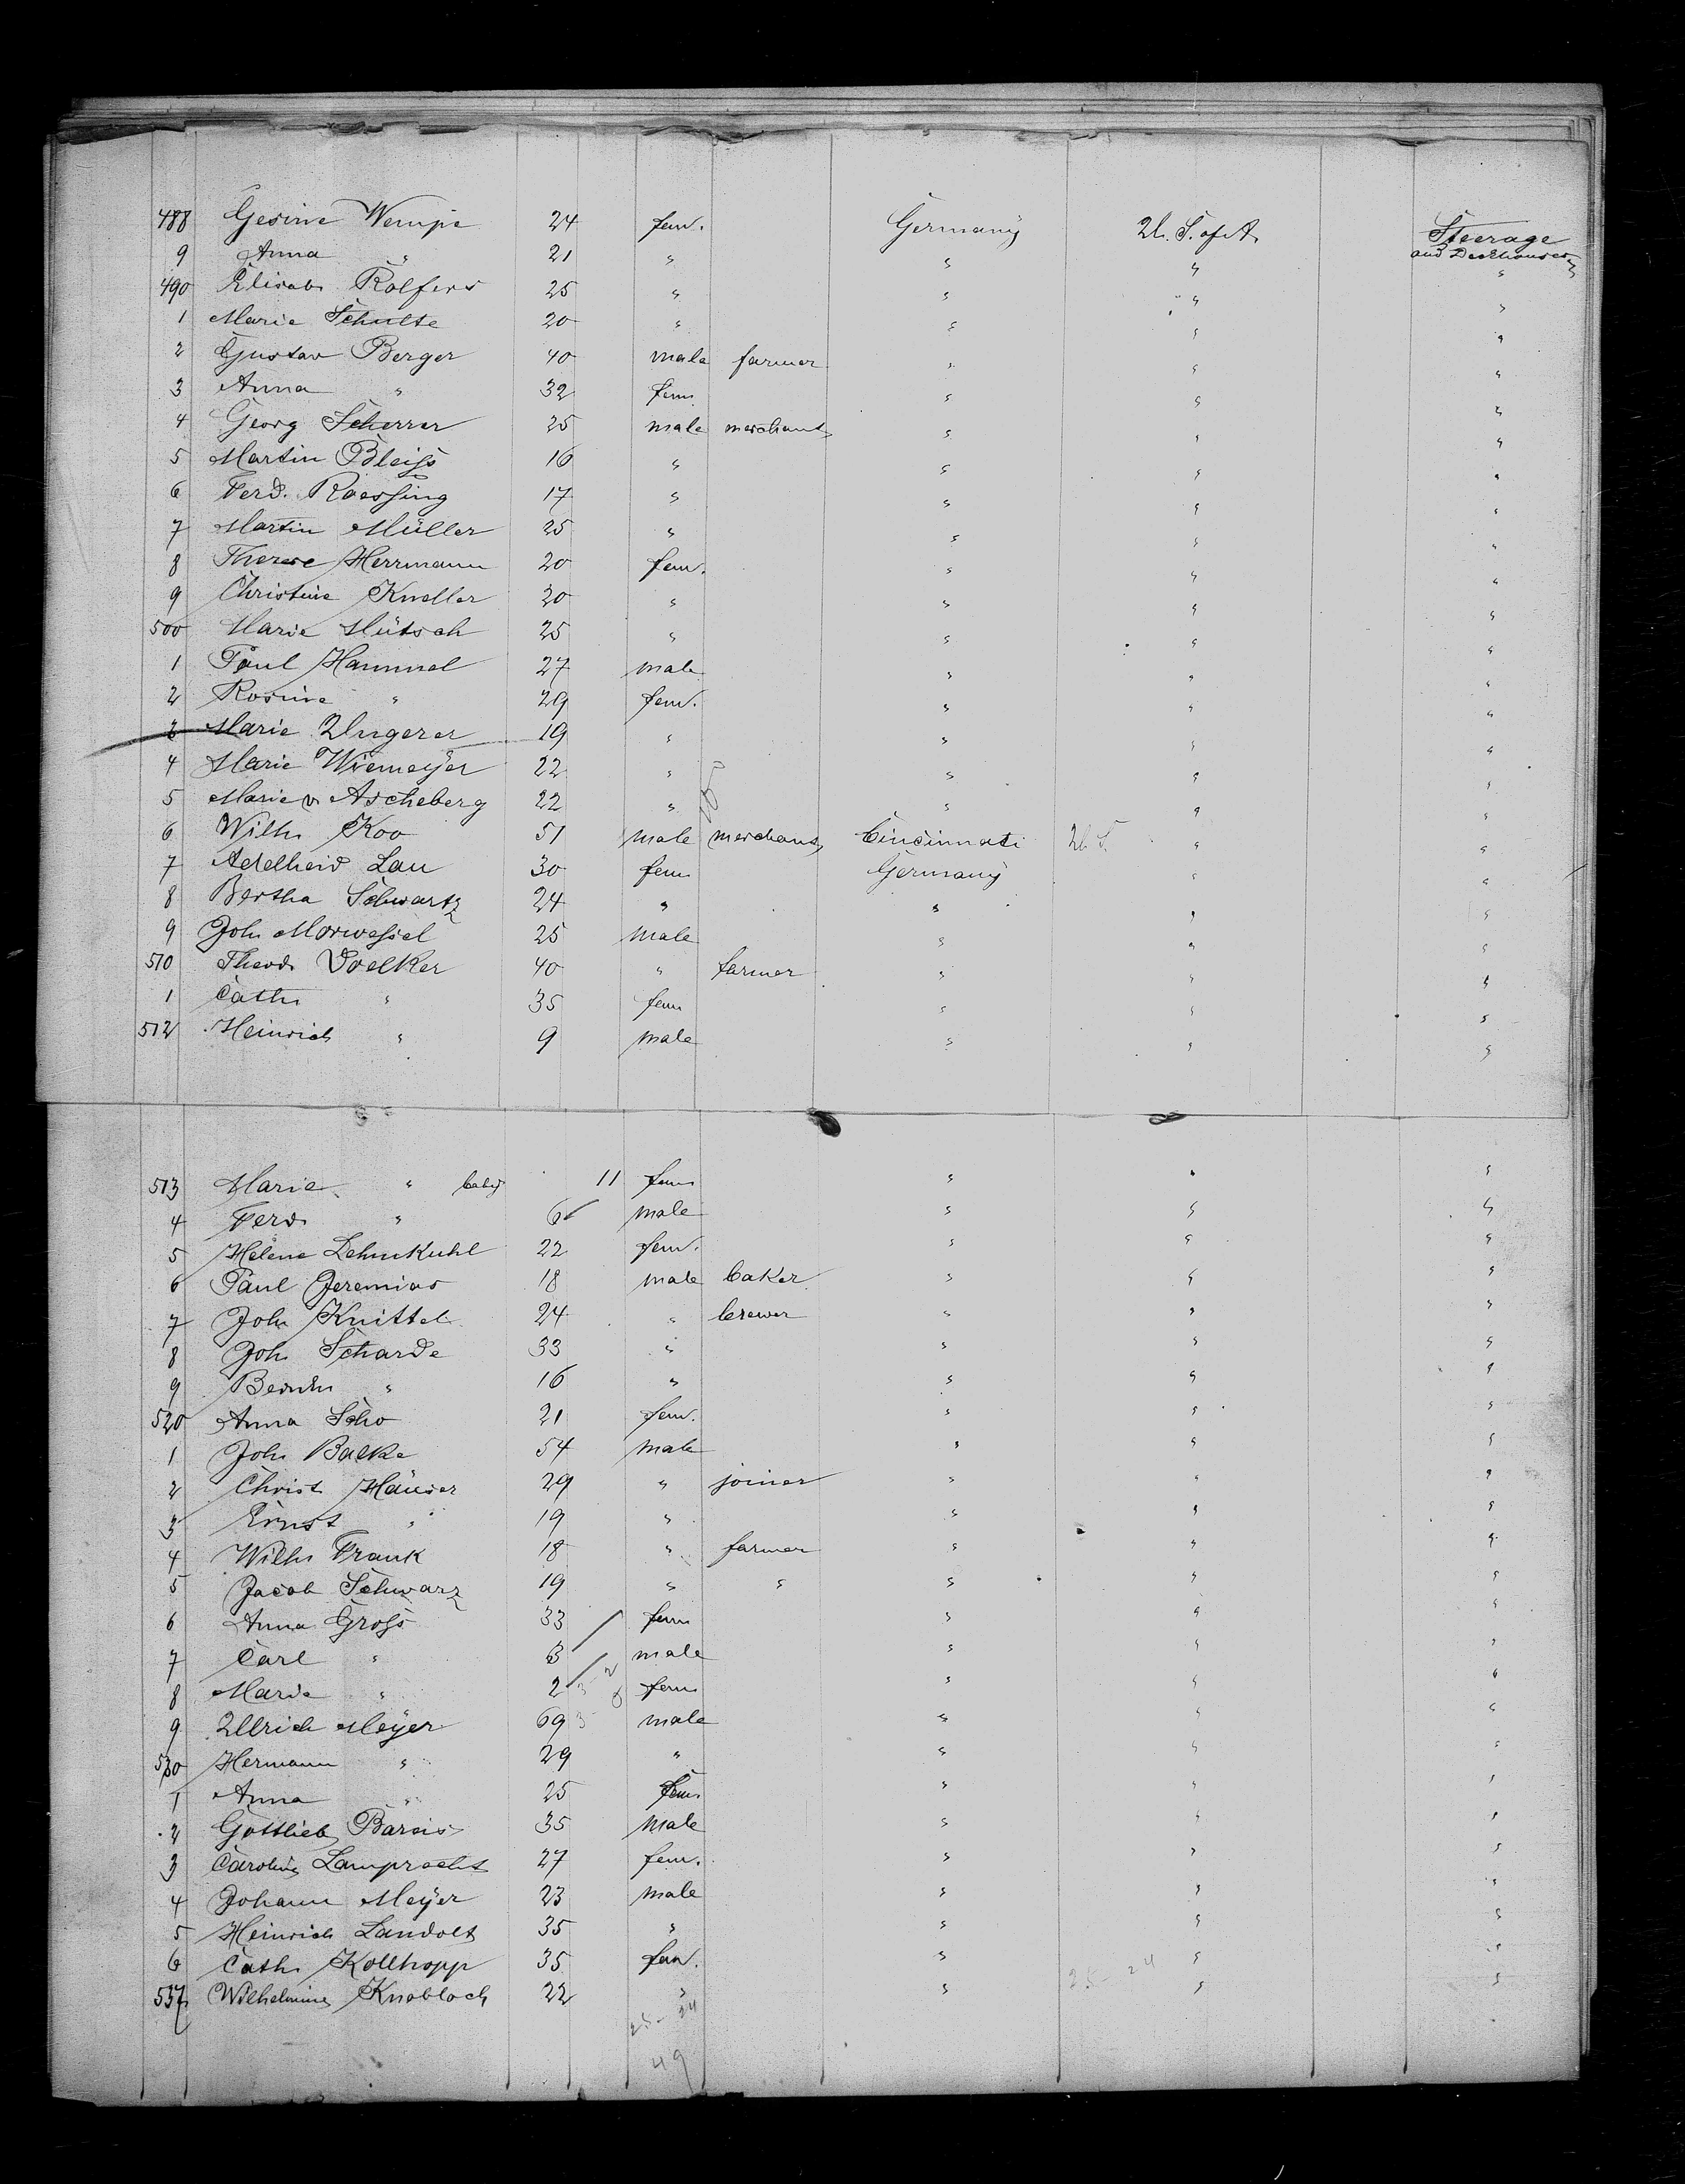 488 Gesine Wempe 24 fem. Germany U. S. of A. Steerage
and Deckhouses
9 Anna " 21 " " " "
490 Elisab Rolfers 25 " " " "
1 Marie Schulte 20 " " " "
2 Gustav Berger 40 male farmer " " "
3 Anna " 32 fem " " "
4 Georg Scherrer 25 male merchant " " "
5 Martin Bleiss 16 " " " "
6 Ferd. Roessing 17 " " " "
7 Martin Müller 25 " " " "
8 Therese Herrmann 20 fem. " " "
9 Christine Kneller 20 " " " "
500 Marie Mütsch 25 " " " "
1 Paul Hammel 27 male " " "
2 Rosine " 29 fem. " " "
3 Marie Ungerer 19 " " " "
4 Marie Wiemeÿer 22 " " " "
5 Marie v Ascheberg 22 " " " "
6 Wilh Koo 51 male merchant Cincinnati U. S. " "
7 Adelheid Lau 30 fem Germany " "
8 Bertha Schwartz 24 " " " "
9 Joh Morwessel 25 male " " "
510 Theod Voelker 40 " farmer " " "
1 Cath " 35 fem " " "
512 Heinrich " 9 male " " "
513 Marie " baby 11 fem " " "
4 Ferd " 6 male " " "
5 Helene Lehmkuhl 22 fem. " " "
6 Paul Jeremias 18 male baker " " "
7 Joh Knittel 24 " brewer " " "
8 Joh Scharde 33 " " " "
9 Bernh " 16 " " " "
520 Anna Scho 21 fem. " " "
1 Joh Backe 54 male " " "
2 Christ Häuser 29 " joiner " " "
3 Ernst " 19 " " " "
4 Wilh Frank 18 " farmer " " "
5 Jacob Schwarz 19 " " " " "
6 Anna Gross 33 fem " " "
7 Carl " 3 male " " "
8 Marie " 2 fem " " "
9 Ullrich Meÿer 69 male " " "
530 Hermann " 29 " " " "
1 Anna " 25 fem " " "
2 Gottlieb Bareis 35 male " " "
3 Caroline Lamprecht 27 fem. " " "
4 Johann Meÿer 23 male " " "
5 Heinrich Landolt 35 " " " "
6 Cath Kollhopp 35 fem. " " "
537 Wilhelmine Knobloch 22 " " " "
25 - 24
25 - 24
49